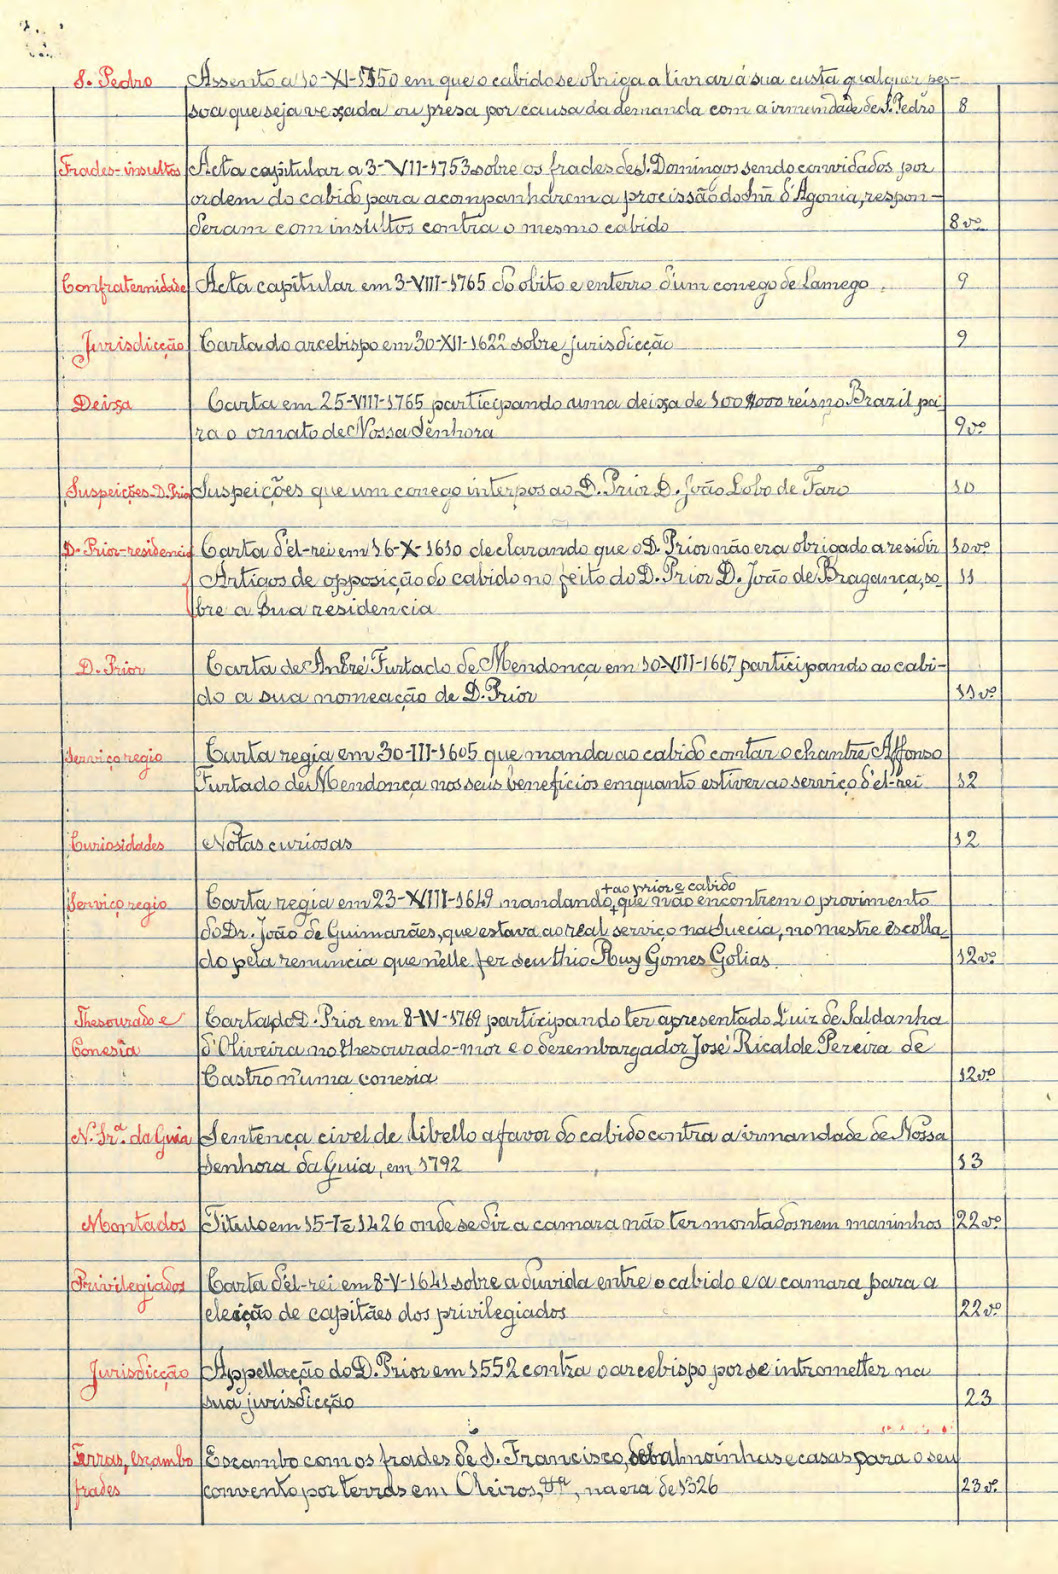 S. Pedro Assento a 10-XI-1550 em que o cabido se obriga a livrar á sua custa qualquer pes-
soa que seja vexada ou presa por causa da demanda com a irmandade de S. Pedro 8
Frades-insultos Acta capitular a 3-VII-1753 sobre os frades de S. Domingos sendo convidados por
ordem do cabido para acompanhárem a procissão do Snr. d'Agonia, respon-
deram com insultos contra o mesmo cabido 8vº
Confraternidade Acta capitular em 3-VIII-1765 do obito e enterro d'um conego de Lamego. 9
Jurisdicção Carta do arcebispo em 30-XII-1622 sobre jurisdicção 9
Deixa Carta em 25-VIII-1765 participando uma deixa de 100$000 reis no Brazil pa-
ra o ornato de Nossa Senhora 9vº
Suspeições-D. Prior Suspeições que um conego interpos ao D. Prior D. João Lobo de Faro 10
D. Prior-residencia Carta d'el-rei em 16-X-1610 declarando que o D. Prior não era obrigado a residir 10vº
Artigos de opposição do cabido no feito do D. Prior D. João de Bragança, so- 11
bre a sua residencia
D. Prior Carta de André Furtado de Mendonça em 10-VIII-1667 participando ao cabi-
do a sua nomeação de D. Prior 11vº
Serviço regio Carta regia em 30-III-1605 que manda ao cabido contar o chantre Affonso
Furtado de Mendonça nos seus beneficios emquanto estiver ao serviço d'el-rei 12
Curiosidades Notas curiosas 12
+ao prior e cabido
Serviço regio Carta regia em 23-XIII-1649 mandando + que não encontrem o provimento
do Dr. João de Guimarães, que estava ao real serviço na Suecia, no mestre escolla-
do pela renuncia que n'elle fez seu thio Ruy Gomes Golias. 12vº
Thesourado e Carta do D. Prior em 8-IV-1769 participando ter apresentado Luiz de Saldanha
Conesia d'Oliveira no thesourado-mor e o dezembargador José Ricalde Pereira de
Castro n'uma conesia 12vº
N. Srª. da Guia Sentença civel de libello a favor do cabido contra a irmandade de Nossa
Senhora da Guia, em 1792 13
Montados Titulo em 15-I-1426 onde se diz a camara não ter montados nem maninhos 22vº
Privilegiados Carta d'el-rei em 8-V-1641 sobre a duvida entre o cabido e a camara para a
eleição de capitães dos privilegiados 22vº
Jurisdicção Appellação do D. Prior em 1552 contra o arcebispo por se intrometter na
sua jurisdicção 23
Terras, escambo Escambo com os frades de S. Francisco, de balmoinhas e casas para o seu
frades convento por terras em Oleiros, &ª, na era de 1326 23vº